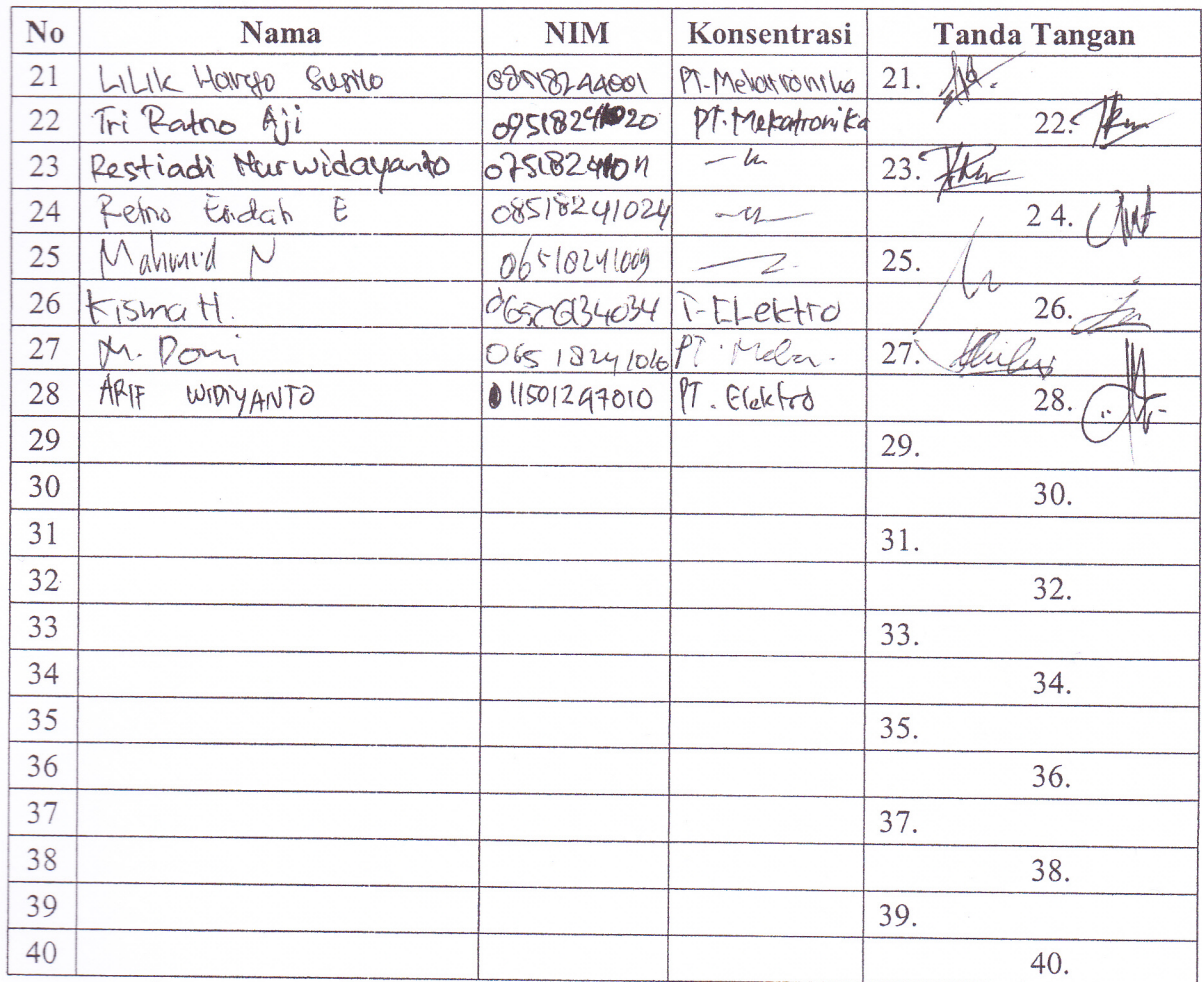 No Nama NIM Konsentrasi Tanda Tangan
21 LILIK Hargo Susilo 08518244001 PT.Mekatronika 21.
22 Tri Ratno Aji 09518241020 PT.Mekatronika 22.
23 Restiadi Nurwidayanto 07518241011 23.
24 Retno Endah E 08518241024 24.
25 Mahmud N 06518241009 25.
26 Kisma H. T-ELektro 26.
27 M. Doni 06518241016 PT. Meka. 27.
28 ARIF WIDIYANTO 11501247010 PT. Elektro 28.
29 29.
30 30.
31 31.
32 32.
33 33.
34 34.
35 35.
36 36.
37 37.
38 38.
39 39.
40 40.